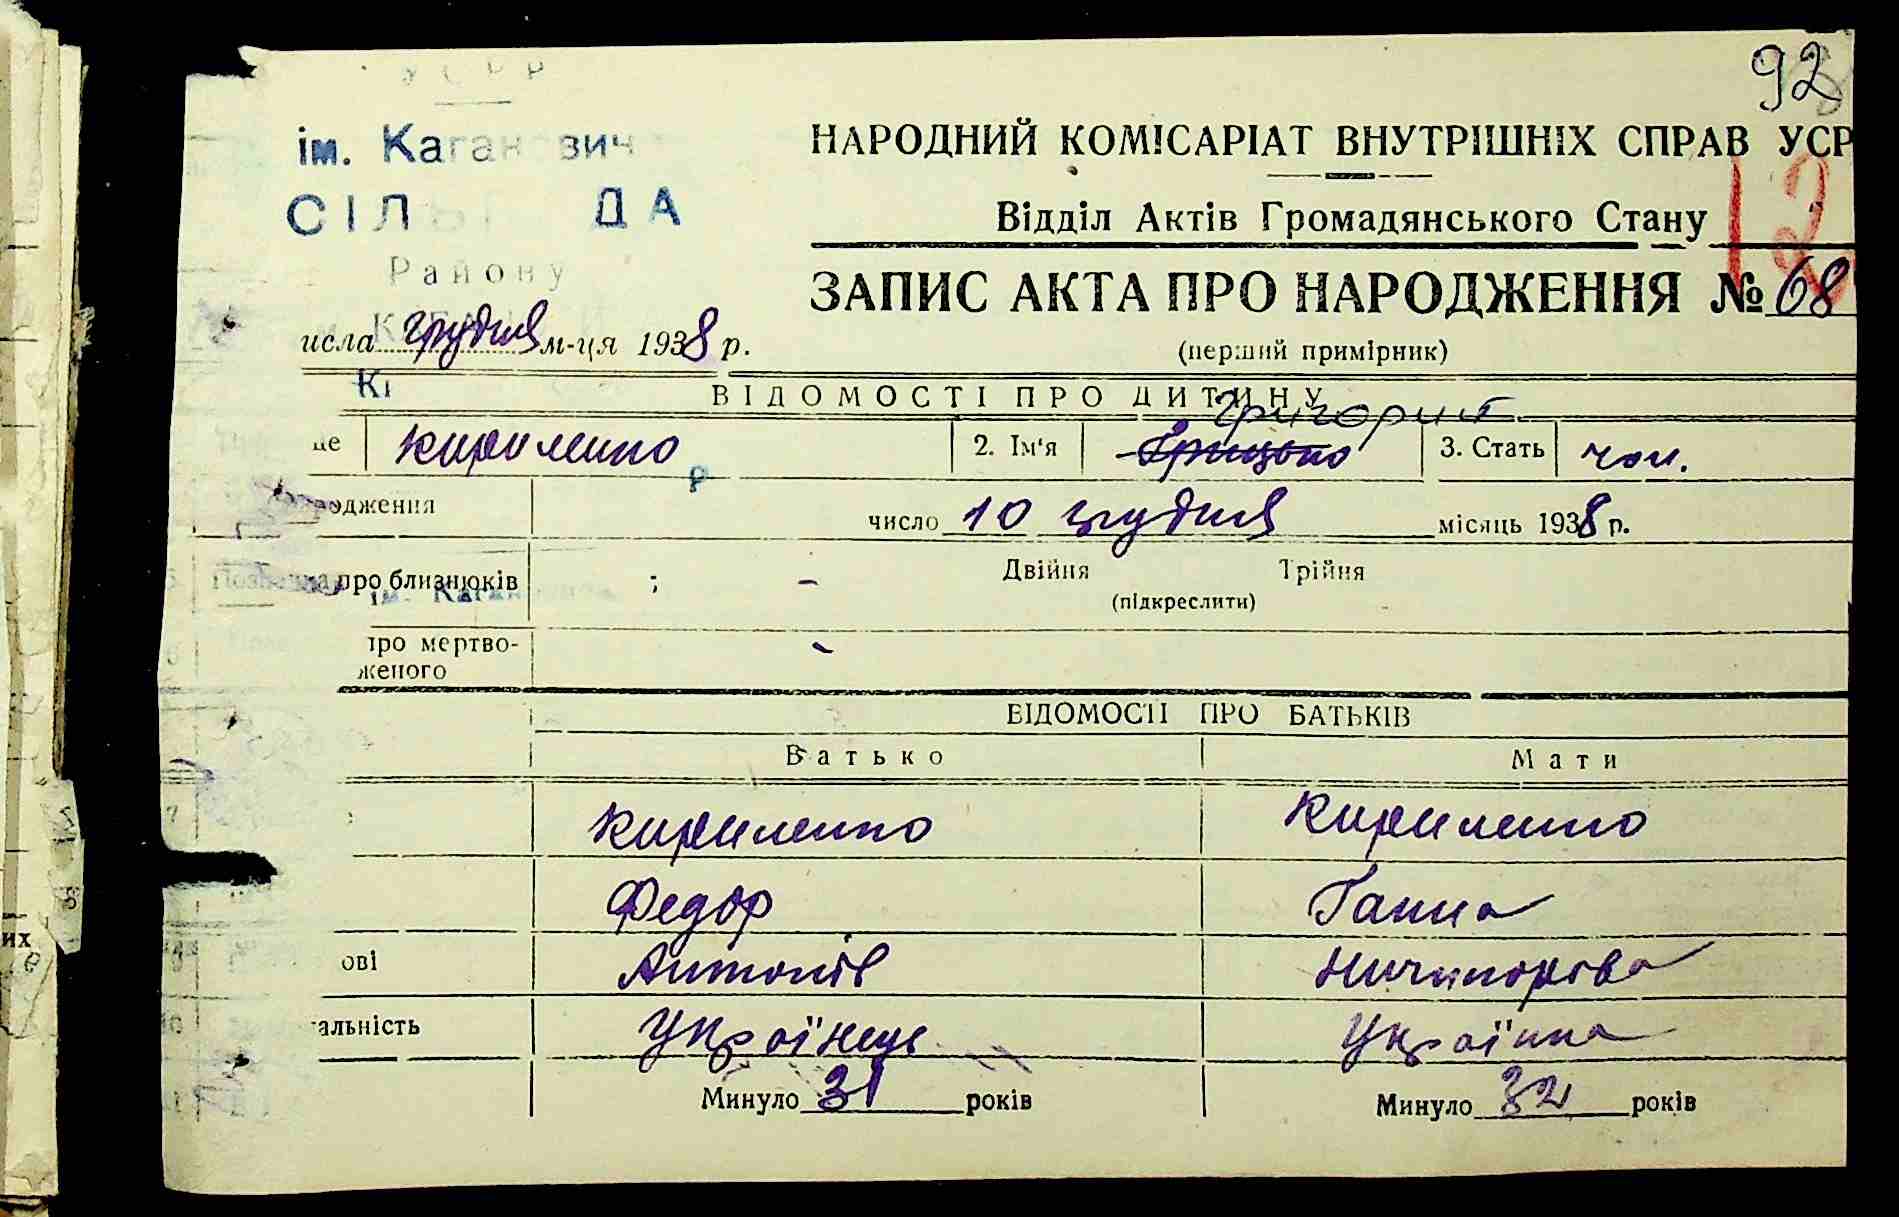 УСРР
92
ім. Каганович
НАРОДНИЙ КОМІСАРІАТ ВНУТРІШНІХ СПРАВ УСР
СІЛЬ ДА
Відділ Актів Громадянського Стану
12
Району
ЗАПИС АКТА ПРО НАРОДЖЕННЯ № 68
исла грудня м-ця 1938 р.
(перший примірник)
Кі
ВІДОМОСТІ ПРО ДИТИНУ
Григорий
це Кириленко 2. Ім'я Грицько 3. Стать чол.
родження число 10 грудня місяць 1938 р.
про близнюків ; - Двійня Трійня
ім. Каган
(підкреслити)
про мертво-
женого -
ВІДОМОСТІ ПРО БАТЬКІВ
Батько Мати
7 Кириленко Кириленко
Федор Ганна
ові Антонів Ничипорова
альність Українець Українка
Минуло 31 років Минуло 32 років
их